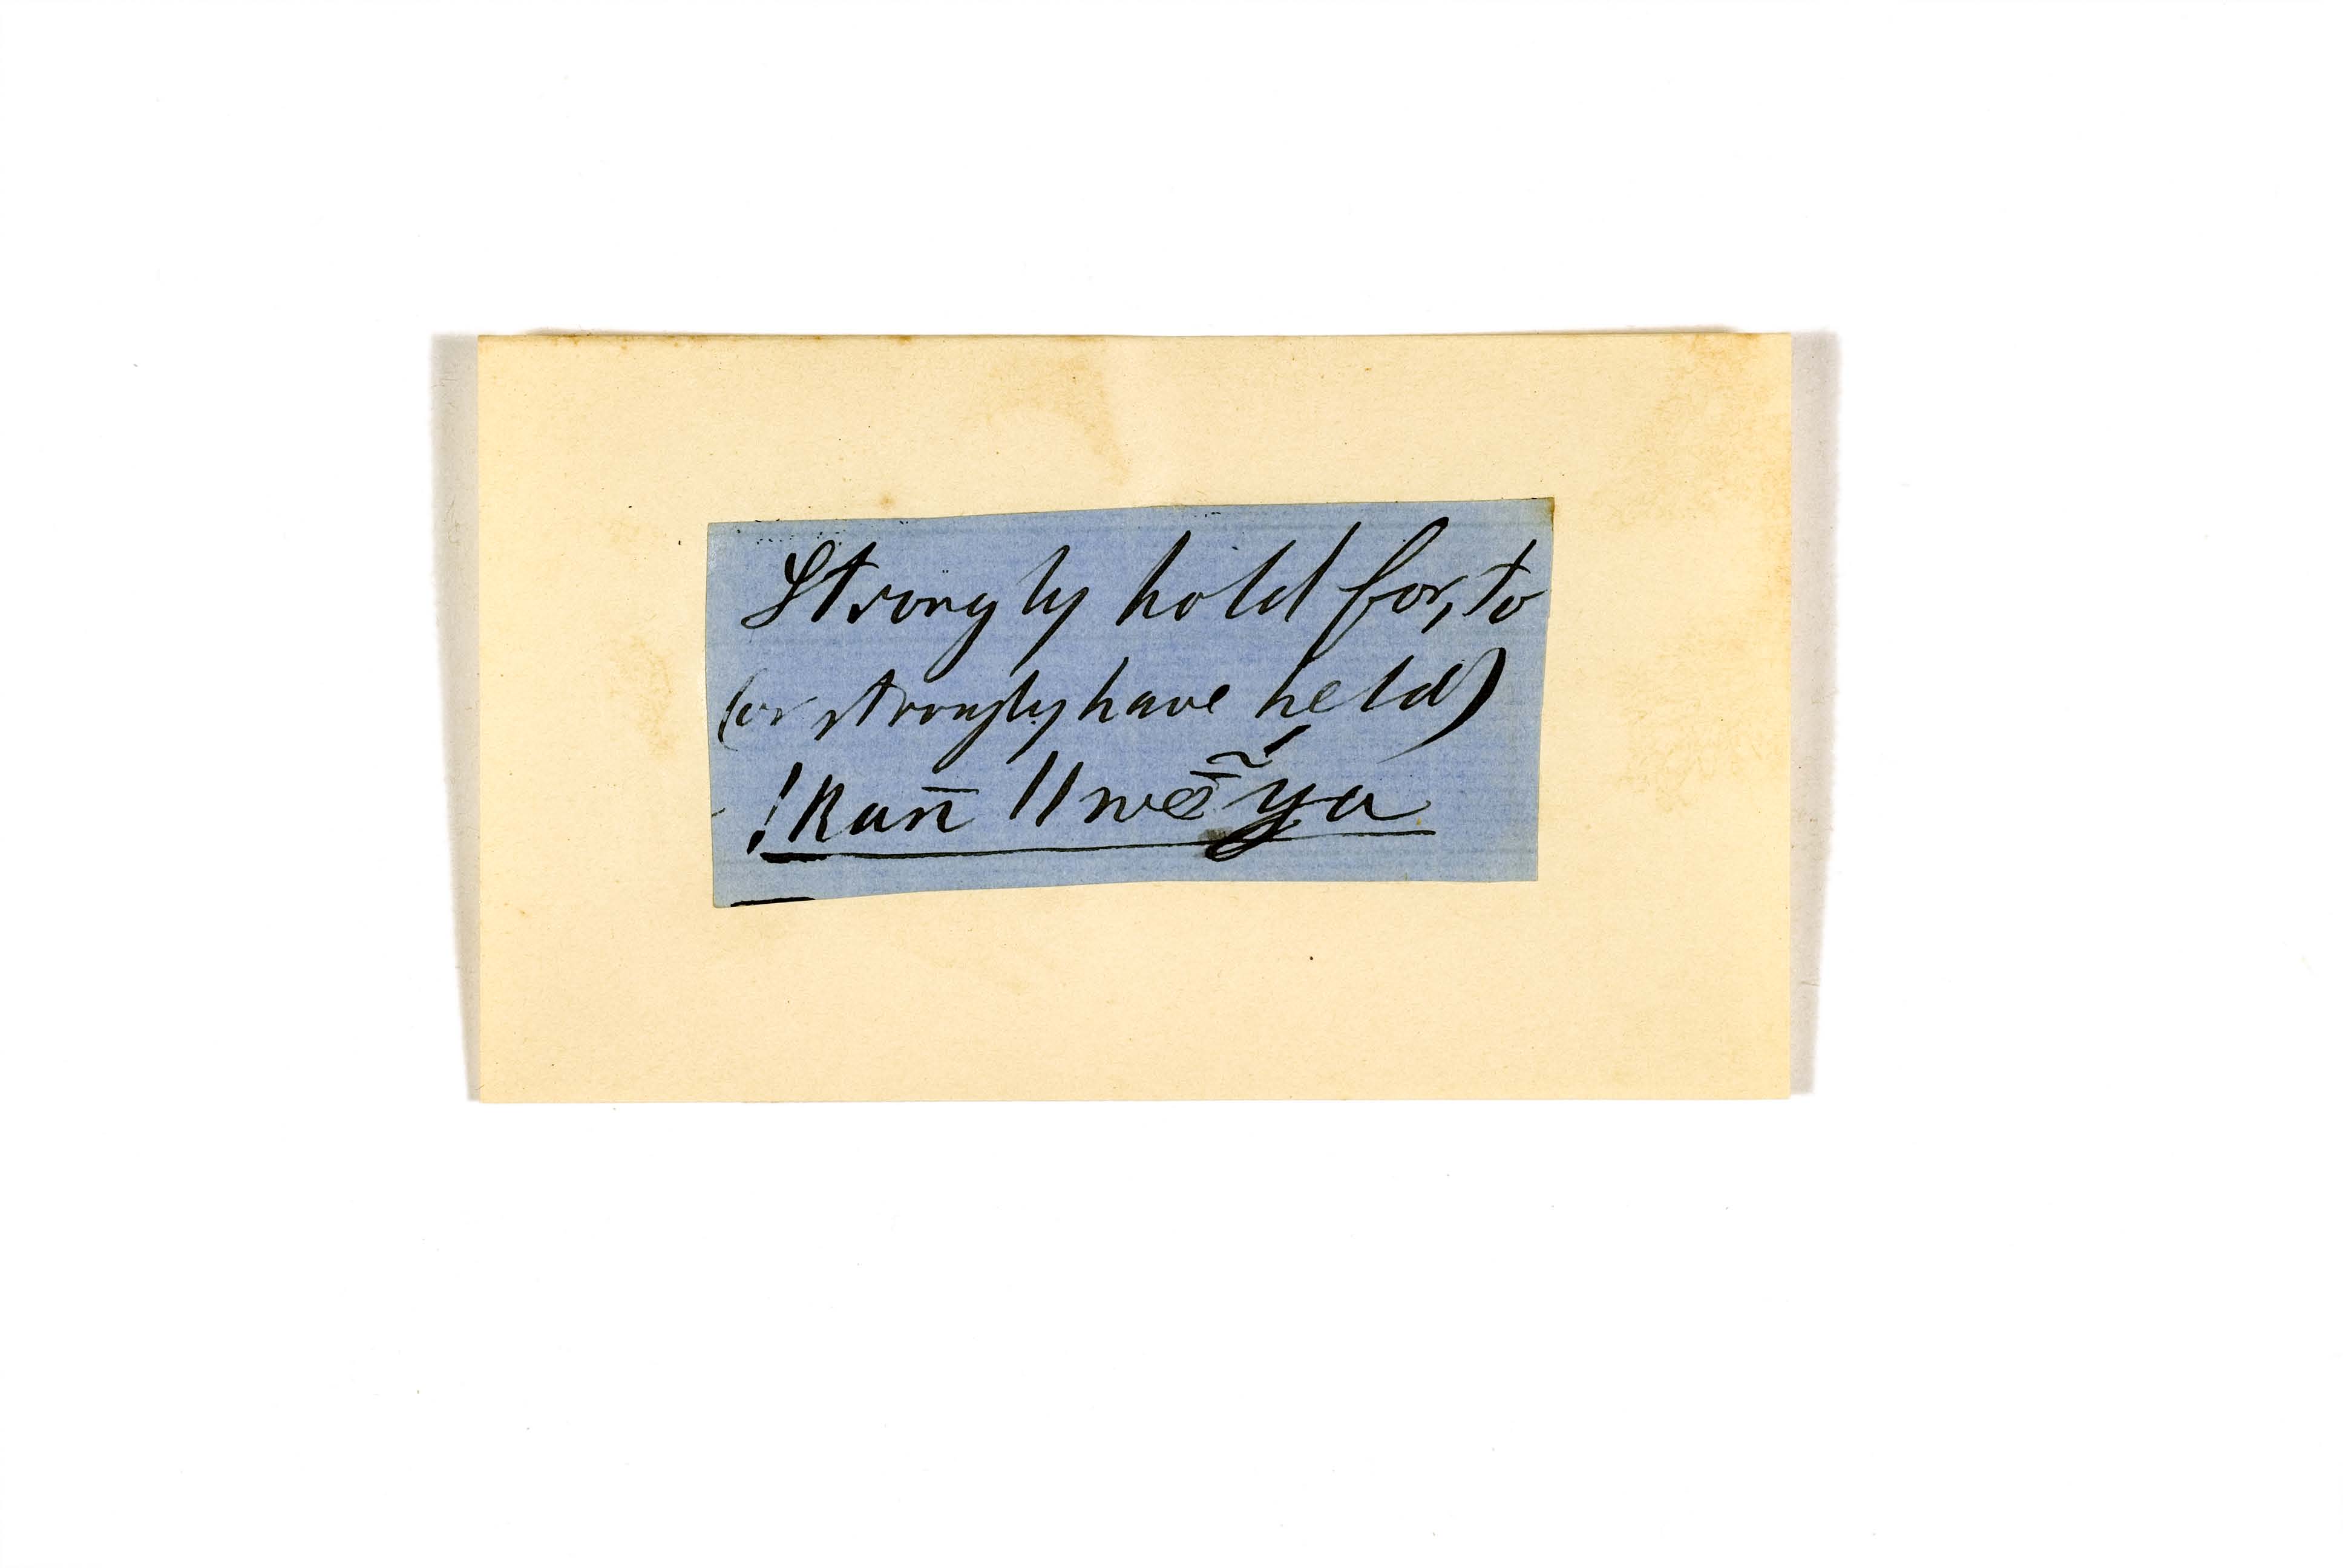 Strongly hold for, to
(or strongly have held)
!kan̄ ǁnā̰